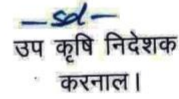 -sd-
उप कृषि निदेशक
करनाल।